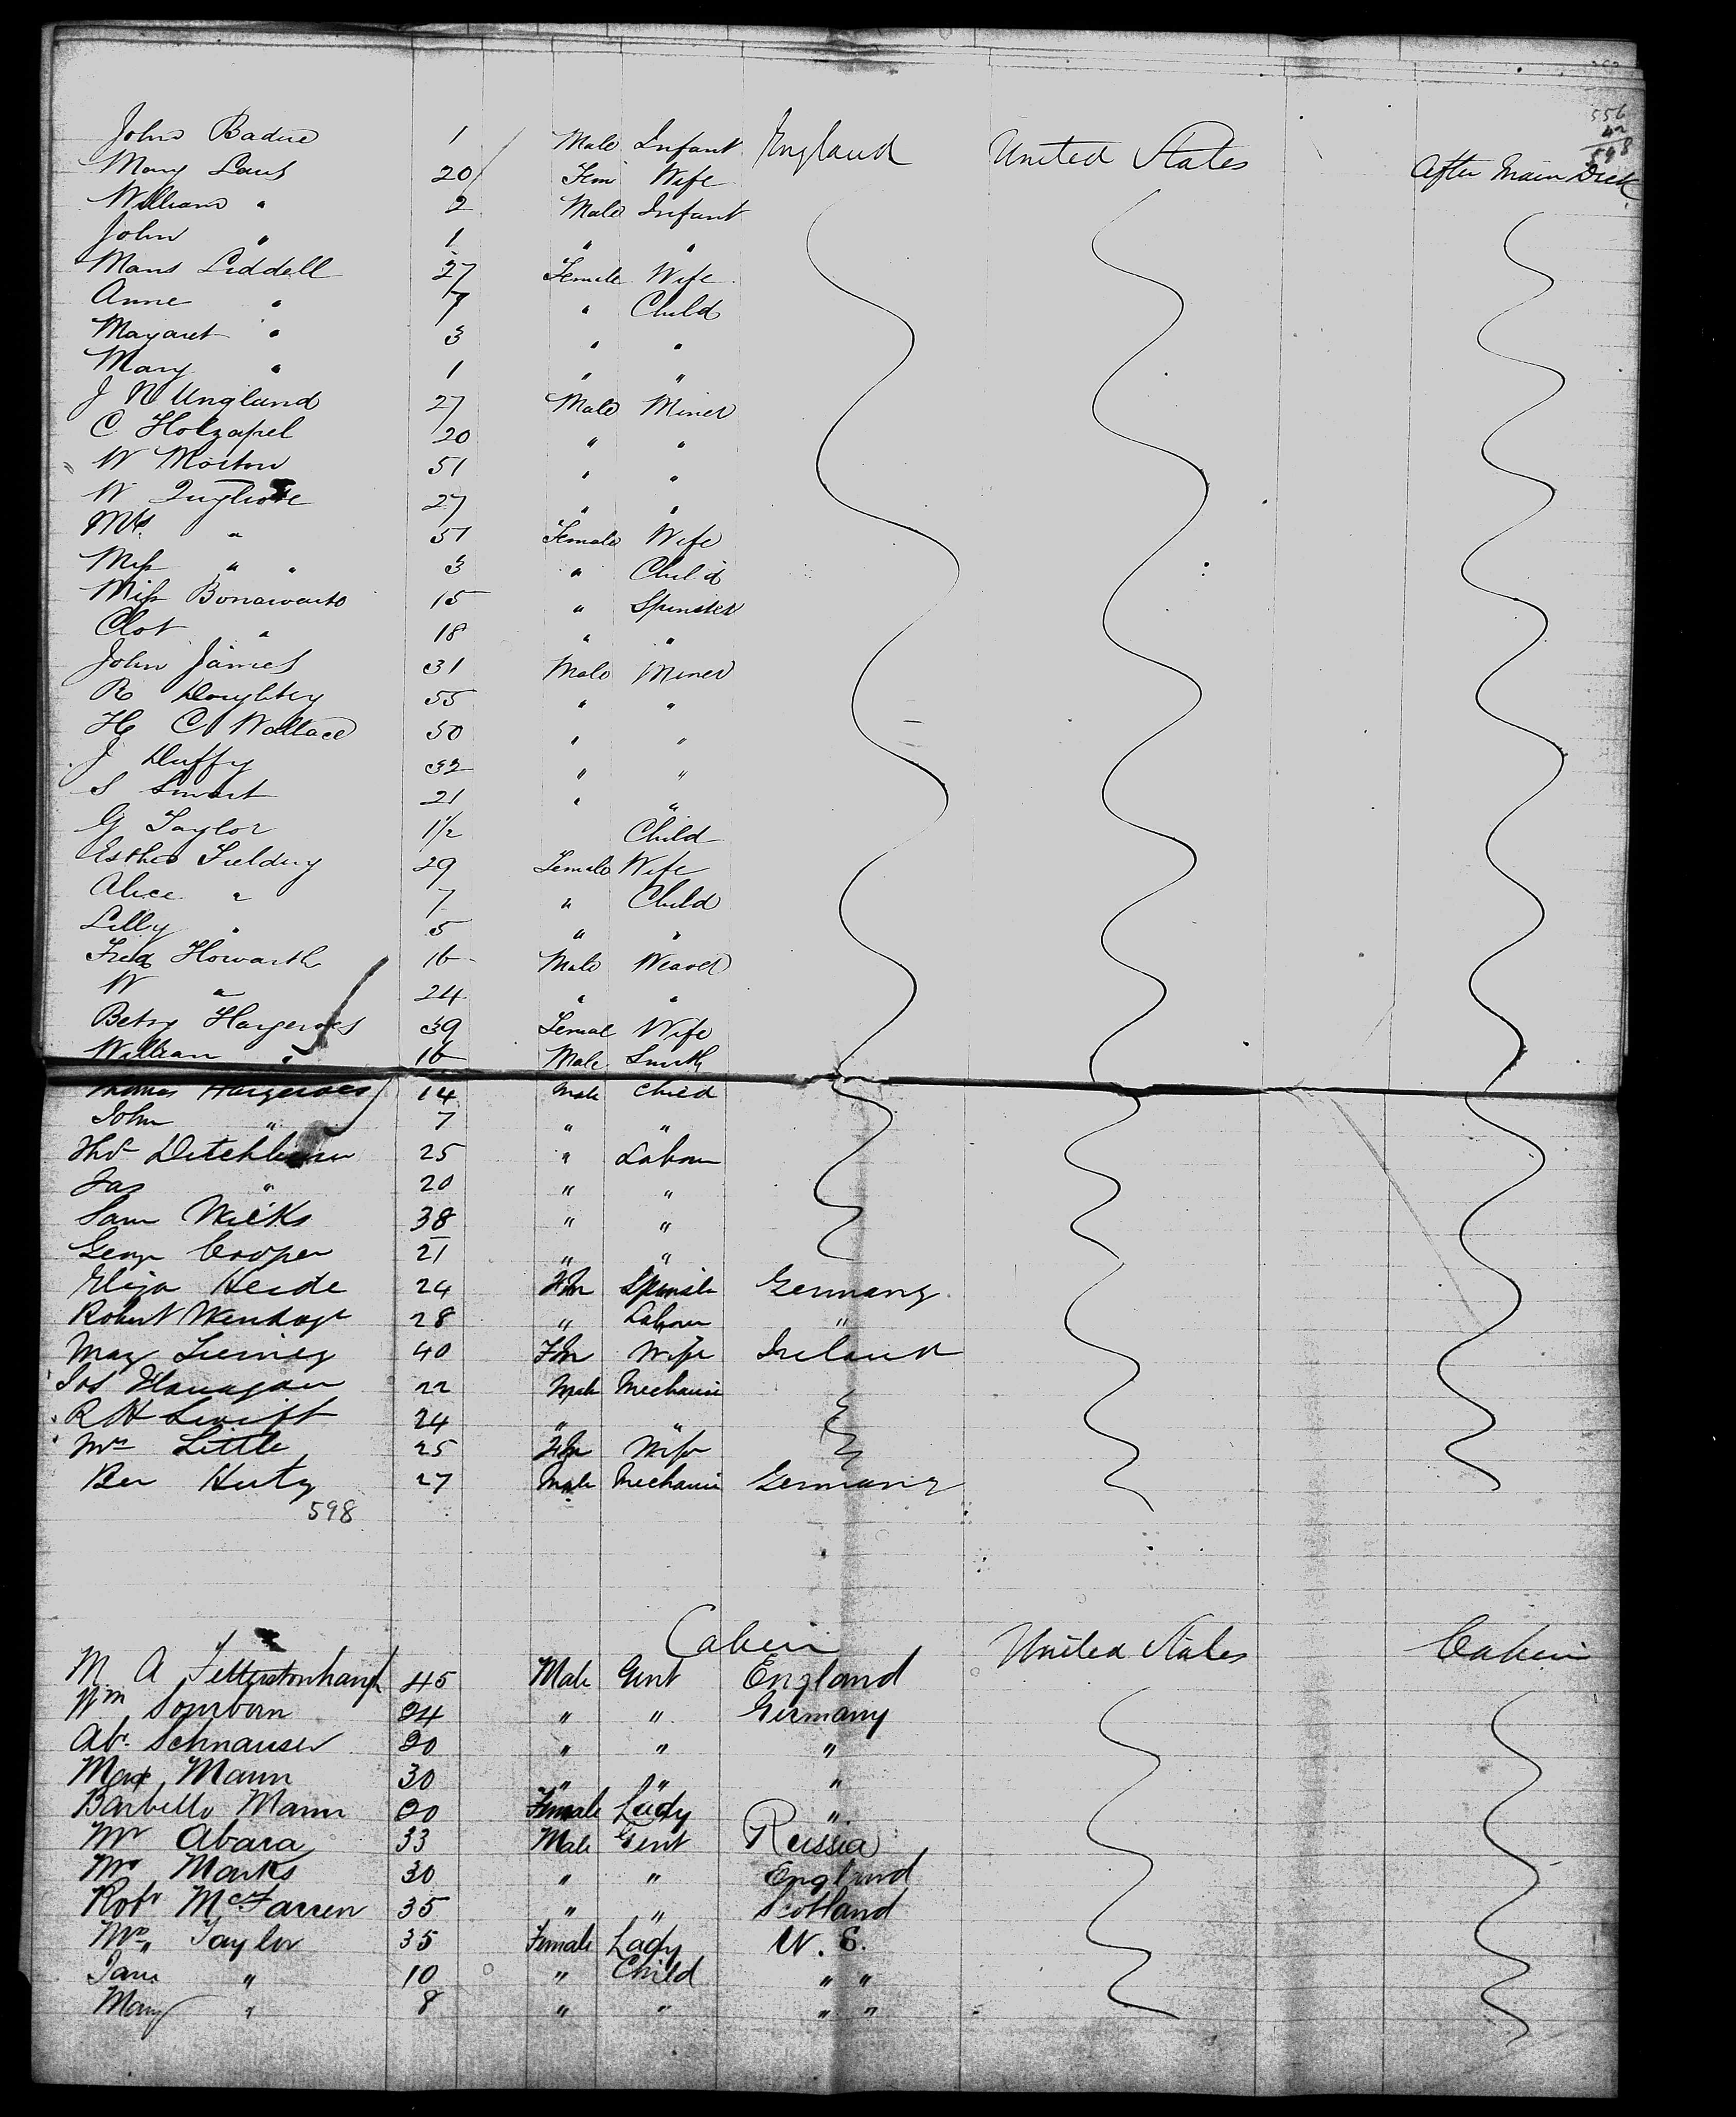 556
42
598
John Badue 1 Male Infant England United States After Main Deck
Mary Laws 20 Fem Wife
William " 2 Male Infant
John " 1 " "
Mans Liddell 27 Female Wife
Anne " 7 " Child
Margaret " 3 " "
Mary " 1 " "
J N Ungland 27 Male Miner
C Holzapel 20 " "
W Morton 51 " "
W 27 " "
Mrs " 31 Female Wife
Miss " " 3 " Child
Miss 15 " Spinster
Clot " 18 " "
John James 31 Male Miner
R Doughtey 55 " "
H C Wallace 30 " "
J Duffy 32 " "
S Smart 21 " "
G Taylor 1 1/2 Child
Esther Fielding 29 Female Wife
Alice " 7 " Child
Lilly " 5 " "
Fred Howarth 16 Male Weaver
W " 24 " "
Betsy Hargerves 39 Female Wife
William " 16 Male Smith
Thomas Hargerves 14 Male Child
John " 7 " "
Thos Ditchburn 25 " Labour
Jas " 20 " "
Sam Wilks 38 " "
George Cooper 21 " "
Eliza Heide 24 Fem Spinster Germany
Robert 28 " Labour "
Mary 40 Fem Wife Ireland
Jos Flanagan 22 Male Mechanic
R H Swift 24 " "
Mrs Little 25 Fem Wife
Ben Hutz 27 Male Mechanic Germany
598
Cabin United States Cabin
M A Fetterstonhaugh 45 Male Gent England
Wm Sourborn 24 " " Germany
Ab. Schnauser 20 " " "
Max Mann 30 " " "
Barbella Mann 20 Female Lady "
Mr Abara 33 Male Gent Russia
Mr Marks 30 " " England
Robt McFarren 35 " " Scotland
Mrs Taylor 35 Female Lady U.S.
Jane " 10 " Child " "
Mary " 8 " " " "